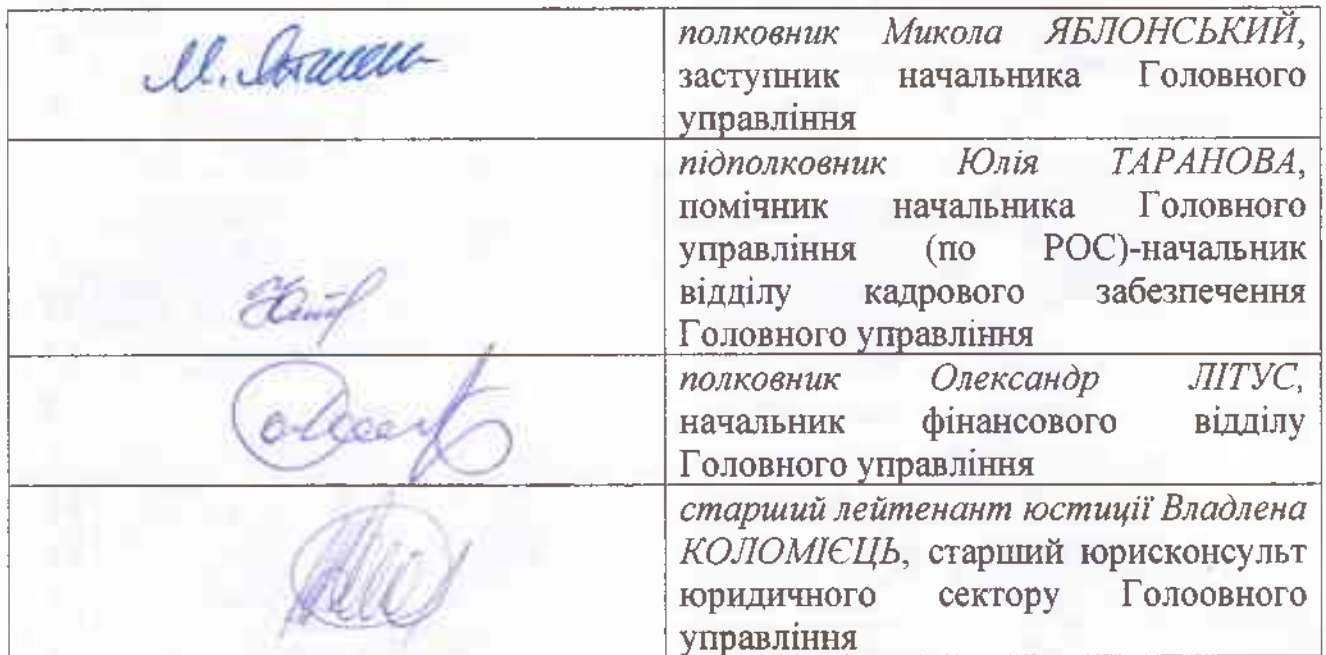 полковник Микола ЯБЛОНСЬКИЙ,
заступник начальника Головного
управління
підполковник Юлія ТАРАНОВА,
помічник начальника Головного
управління (по РОС)-начальник
відділу кадрового забезпечення
Головного управління
полковник Олександр ЛІТУС,
начальник фінансового відділу
Головного управління
старший лейтенант юстиції Владлена
КОЛОМІЄЦЬ, старший юрисконсульт
юридичного сектору Голоовного
управління